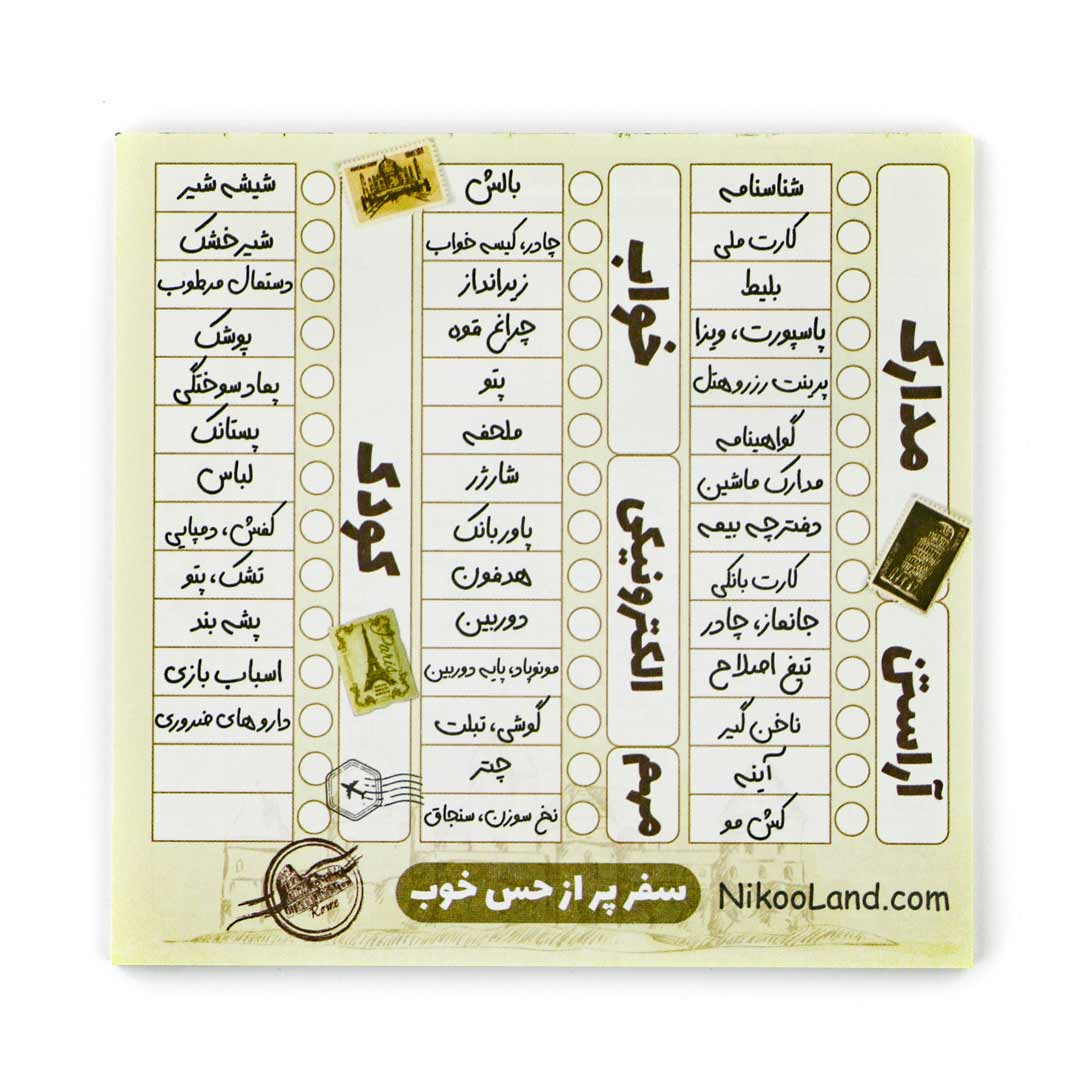 مدارک
شناسنامه
کارت ملی
بلیط
پاسپورت، ویزا
پرینت رزرو هتل
گواهینامه
مدارک ماشین
دفترچه بیمه
کارت بانکی
آراستن
جانماز، چادر
تیغ اصلاح
ناخن گیر
آینه
کش مو
خواب
بالش
چادر، کیسه خواب
زیرانداز
چراغ قوه
پتو
ملحفه
الکترونیکی
شارژر
پاوربانک
هدفون
دوربین
مونوپاد، پایه دوربین
گوشی، تبلت
مهم
چتر
نخ سوزن، سنجاق
کودک
شیشه شیر
شیرخشک
دستمال مرطوب
پوشک
پماد سوختگی
پستانک
لباس
کفش، دمپایی
تشک، پتو
پشه بند
اسباب بازی
داروهای ضروری
Paris
Rome
سفر پر از حس خوب
NikooLand.com